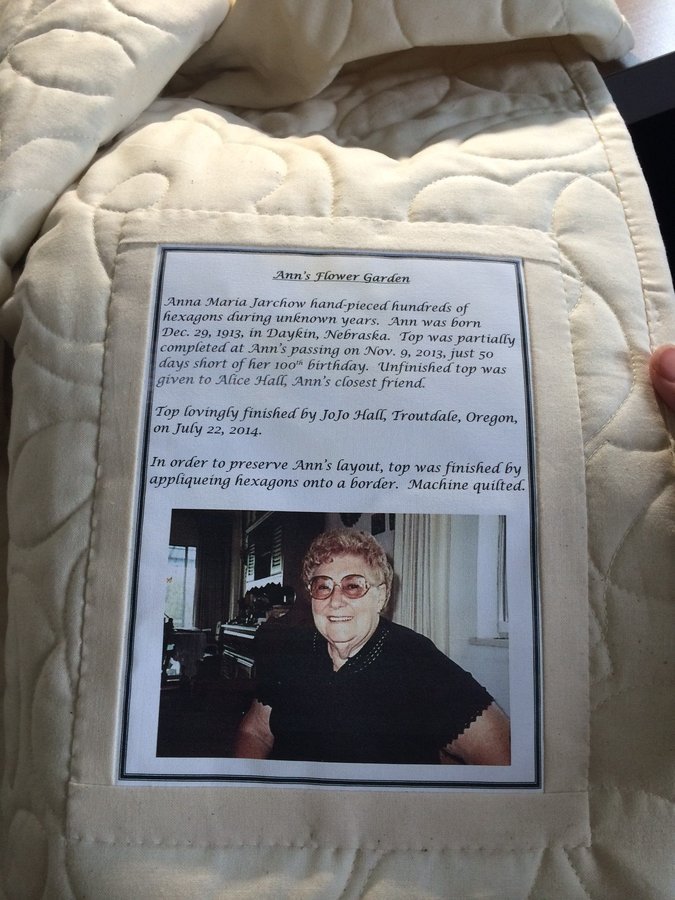 Ann's Flower Garden
Anna Maria Jarchow hand-pieced hundreds of
hexagons during unknown years. Ann was born
Dec. 29, 1913, in Daykin, Nebraska. Top was partially
completed at Ann's passing on Nov. 9, 2013, just 50
days short of her 100th birthday. Unfinished top was
given to Alice Hall, Ann's closest friend.
Top lovingly finished by JoJo Hall, Troutdale, Oregon,
on July 22, 2014.
In order to preserve Ann's layout, top was finished by
appliqueing hexagons onto a border. Machine quilted.